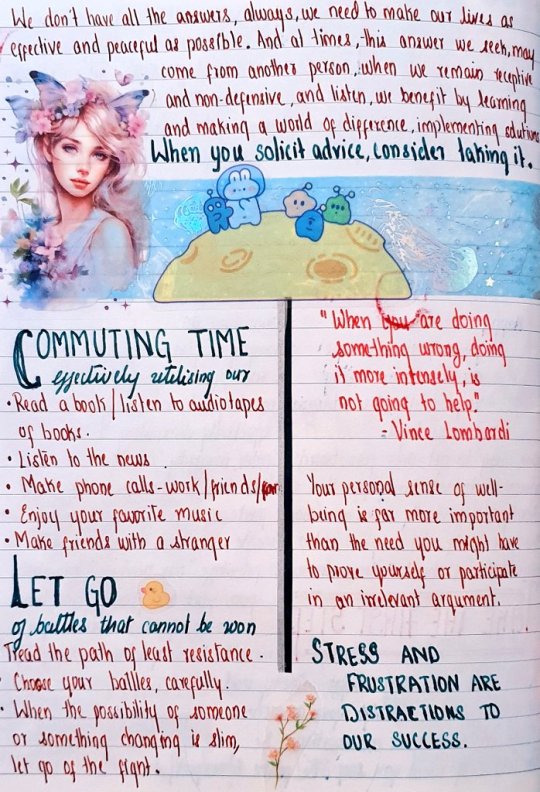 We don't have all the answers, always, we need to make our lives as
effective and peaceful as possible. And at times, this answer we seek, may
come from another person, when we remain receptive
and non-defensive, and listen, we benefit by learning
and making a world of difference, implementing solutions
When you solicit advice, consider taking it.
COMMUTING TIME
effectively utilising our
• Read a book/listen to audiotapes
of books.
• Listen to the news.
• Make phone calls-work/friends/
• Enjoy your favorite music
• Make friends with a stranger
LET GO
of battles that cannot be won
Tread the path of least resistance.
• Choose your battles, carefully.
• When the possibility of someone
or something changing is slim,
let go of the fight.
"When you are doing
something wrong, doing
it more intensely, is
not going to help."
- Vince Lombardi
Your personal sense of well-
being is far more important
than the need you might have
to prove yourself or participate
in an irrelevant argument.
STRESS AND
FRUSTRATION ARE
DISTRACTIONS TO
OUR SUCCESS.